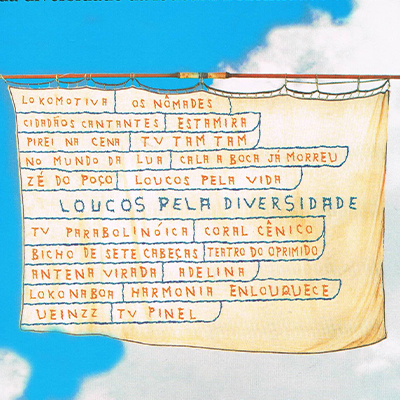 LOKOMOTIVA OS NÔMADES
CIDADÃOS CANTANTES ESTAMIRA
PIREI NA CENA TV TAM TAM
NO MUNDO DA LUA CALA A BOCA JÁ MORREU
ZÉ DO POÇO LOUCOS PELA VIDA
LOUCOS PELA DIVERSIDADE
TV PARABOLINÓICA CORAL CÊNICO
BICHO DE SETE CABEÇAS TEATRO DO OPRIMIDO
ANTENA VIRADA ADELINA
LOKONABOA HARMONIA ENLOUQUECE
UEINZZ TV PINEL